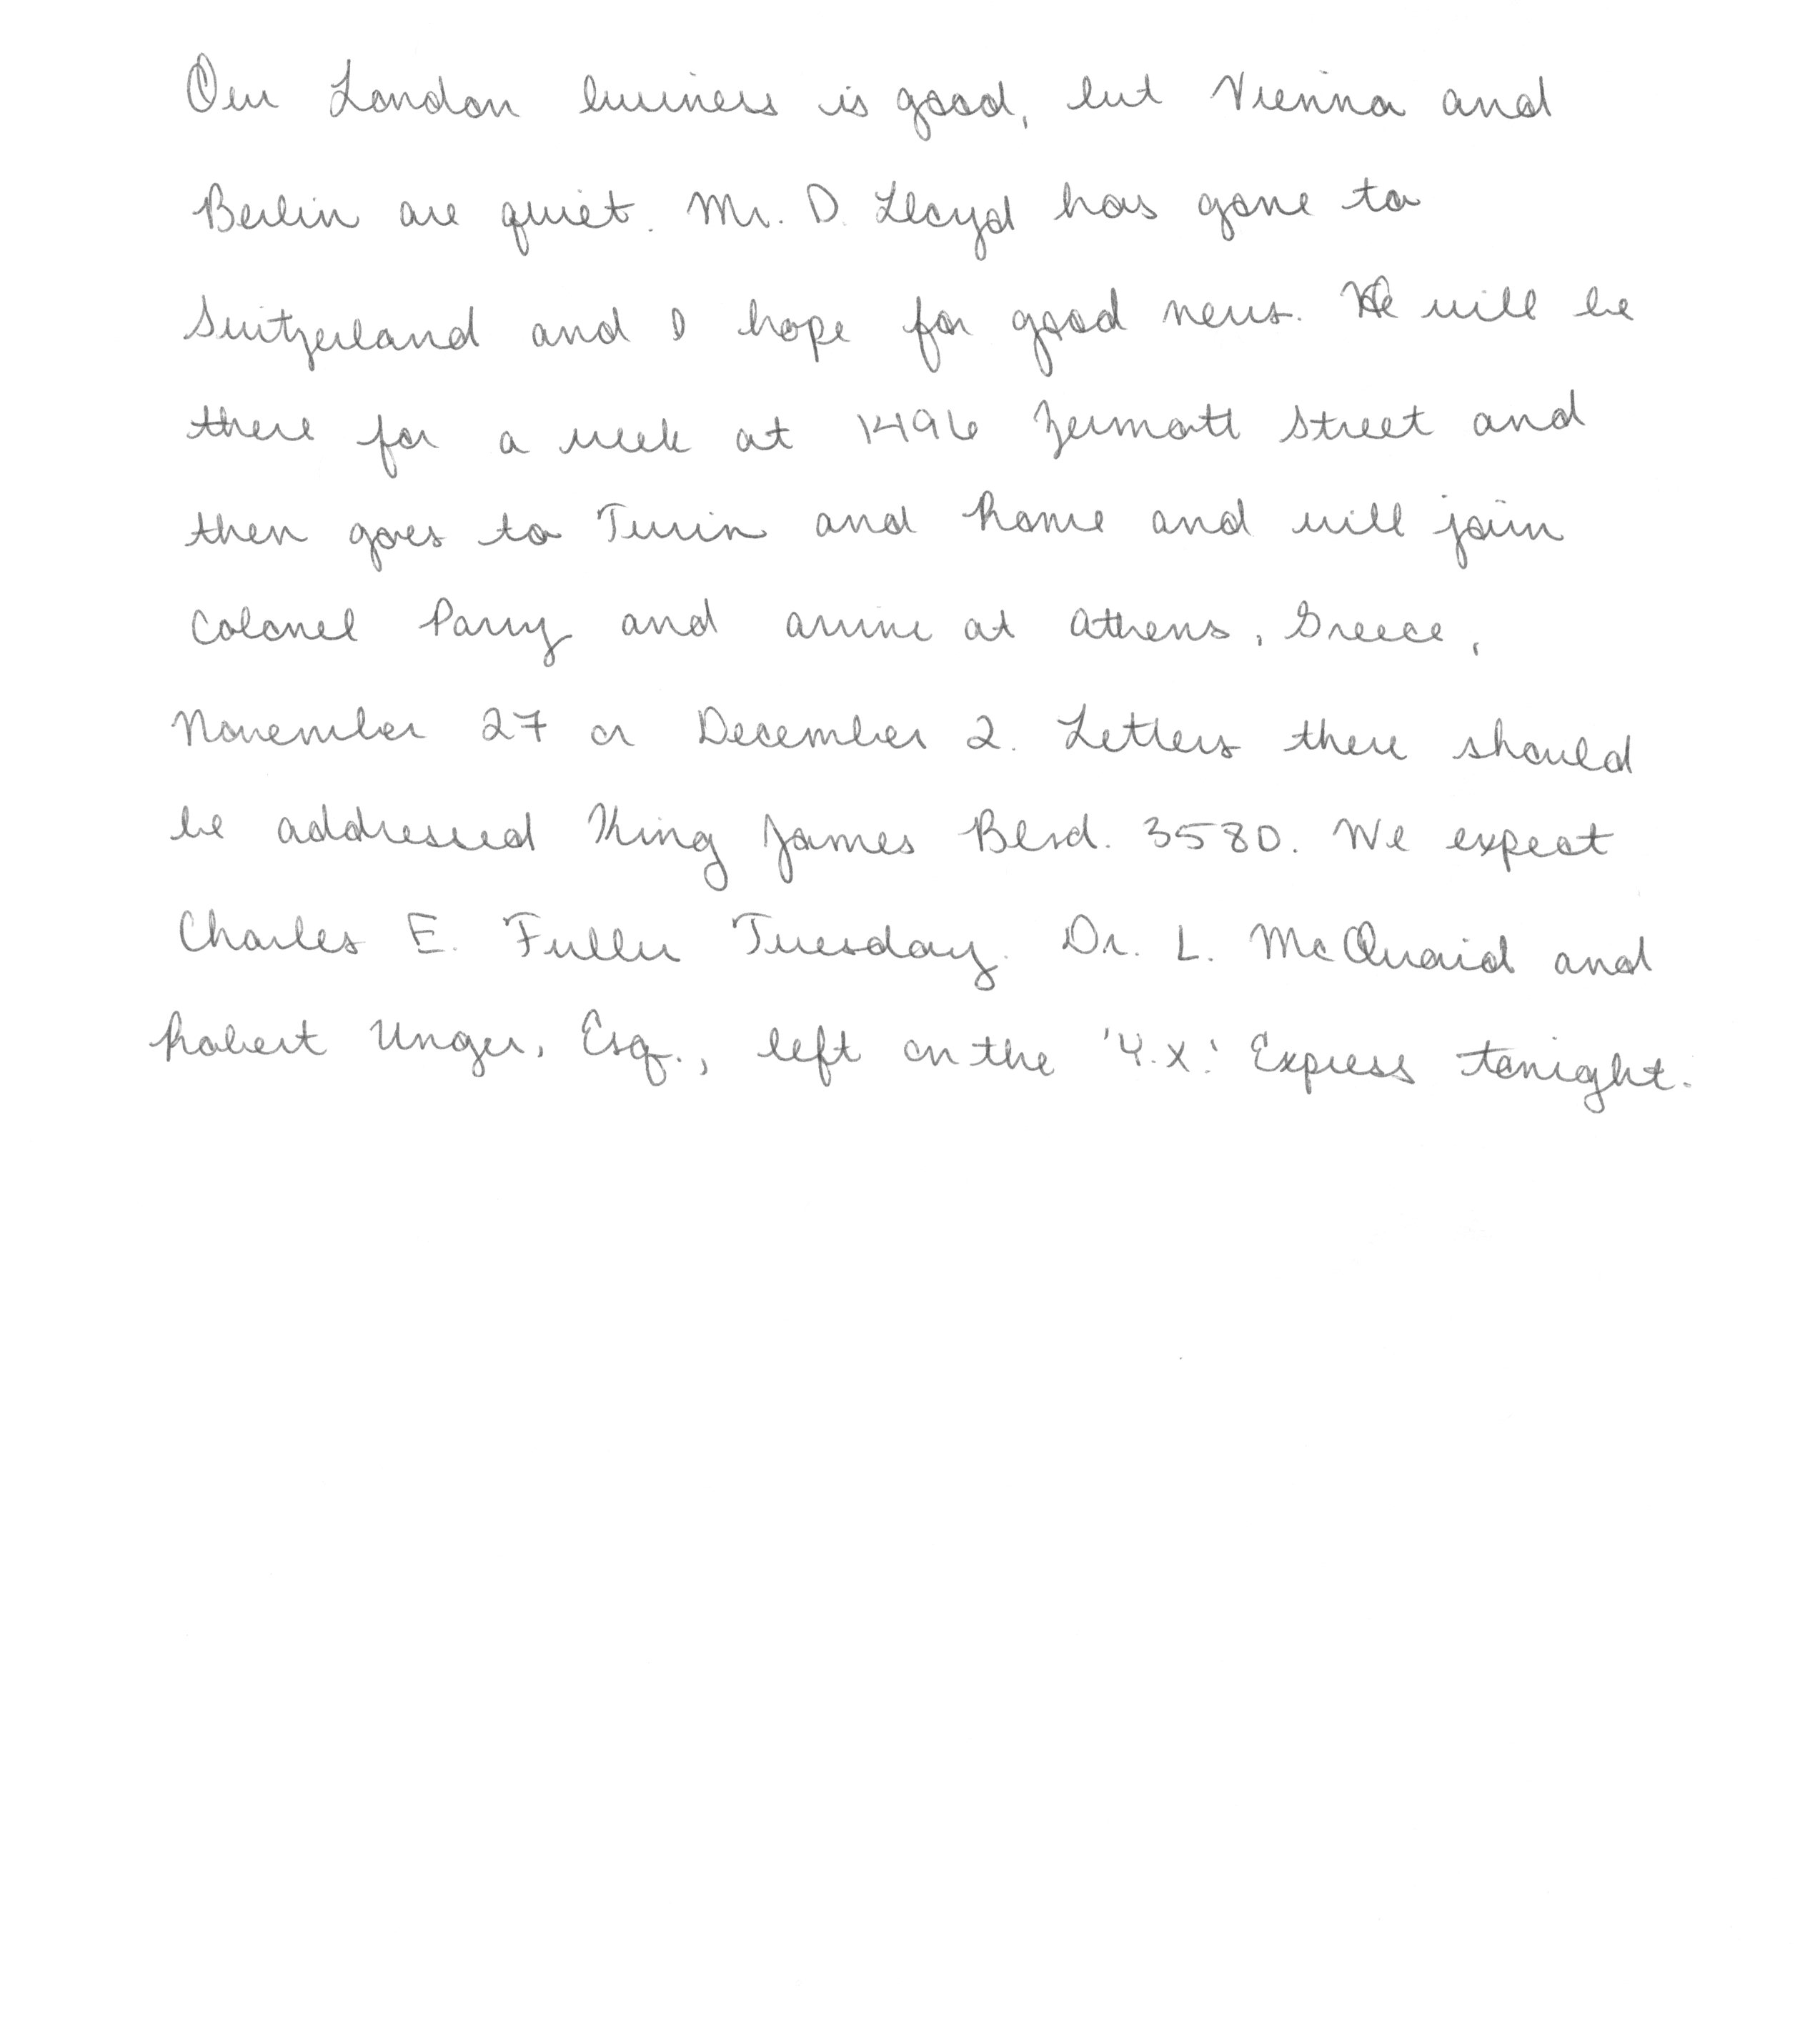 Our London business is good, but Vienna and
Berlin are quiet. Mr. D. Lloyd has gone to
Switzerland and I hope for good news. He will be
there for a week at 1496 Zermatt Street and
then goes to Turin and Rome and will join
Colonel Parry and arrive at Athens, Greece,
November 27 or December 2. Letters there should
be addressed King James Blvd. 3580. We expect
Charles E. Fuller Tuesday. Dr. L. McQuaid and
Robert Unger, Esq., left on the 'Y.X.' Express tonight.